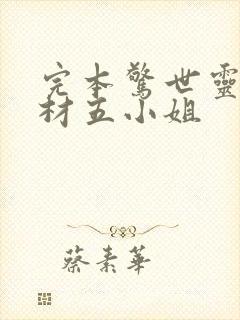 完本驚世靈
材五小姐
蔡素華